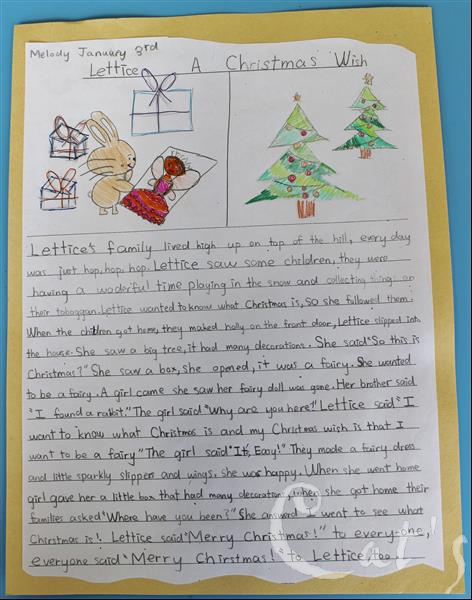 Melody January 3rd
Lettice A Christmas Wish
Lettice's family lived high up on top of the hill, every day
was just hop, hop, hop. Lettice saw some children, they were
having a woderful time playing in the snow and collecting things on
their toboggan. Lettice wanted to know what Christmas is, so she followed them.
When the children got home, they maked holly on the front door, Lettice slipped into
the house. She saw a big tree, it had many decorations. She said "So this is
Christmas?" She saw a box, she opened, it was a fairy. She wanted
to be a fairy. A girl came she saw her fairy doll was gone. Her brother said
"I found a rabbit." The girl said "Why are you here?" Lettice said "I
want to know what Christmas is and my Christmas wish is that I
want to be a fairy." The girl said "It's Easy!" They made a fairy dress
and little sparkly slippers and wings, she was happy. When she went home
girl gave her a little box that had many decorations, when she got home their
families asked "Where have you been?" She answerd "I went to see what
Chirstmas is! Lettice said "Merry Christmas!" to every-one,
everyone said "Merry Chirstmas!" to Lettice, too.
Cat's